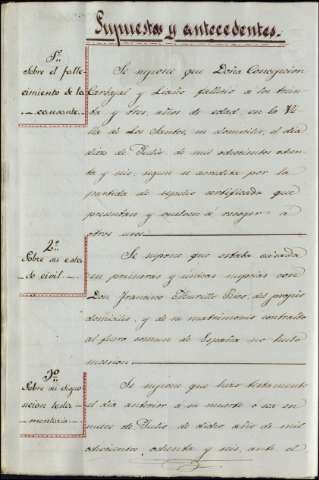 Supuestos y antecedentes.
1º
Sobre el falle-
cimiento de la
causante.
Se supone que Doña Concepcion
Carvajal y Liaño falleció a los trein-
ta y tres años de edad, en la Vi-
lla de Los Santos, su domicilio, el dia
diez de Julio de mil ochocientos ochen-
ta y seis, segun se acredita por la
partida de sepelio certificada que
presentan y vuelven a recoger a
otros usos.
2º
Sobre su esta-
do civil.
Se supone que estaba casada
en primeras y únicas nupcias con
Don Francisco Rico, del propio
domicilio, y de su matrimonio contraido
al fuero comun de España no hubo
sucesion.
3º
Sobre su dispo-
sicion testa-
mentaria
Se supone que hizo testamento
el dia anterior a su muerte o sea en
nueve de Julio de dicho año de mil
ochocientos ochenta y seis, ante el